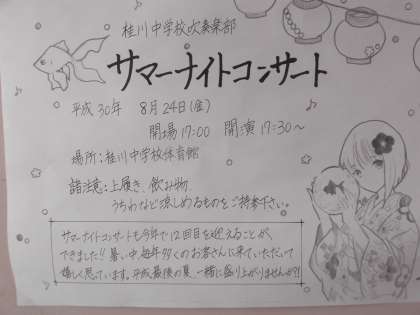 桂川中学校吹奏楽部
サマーナイトコンサート
平成30年 8月24日(金)
開場17:00 開演17:30〜
場所:桂川中学校体育館
諸注意:上履き、飲み物
うちわなど涼しめるものをご持参下さい。
サマーナイトコンサートも今年で12回目を迎えることが
できました!!暑い中、毎年多くのお客さんに来ていただいて
嬉しく思ています。平成最後の夏、一緒に盛り上がりませんか?!